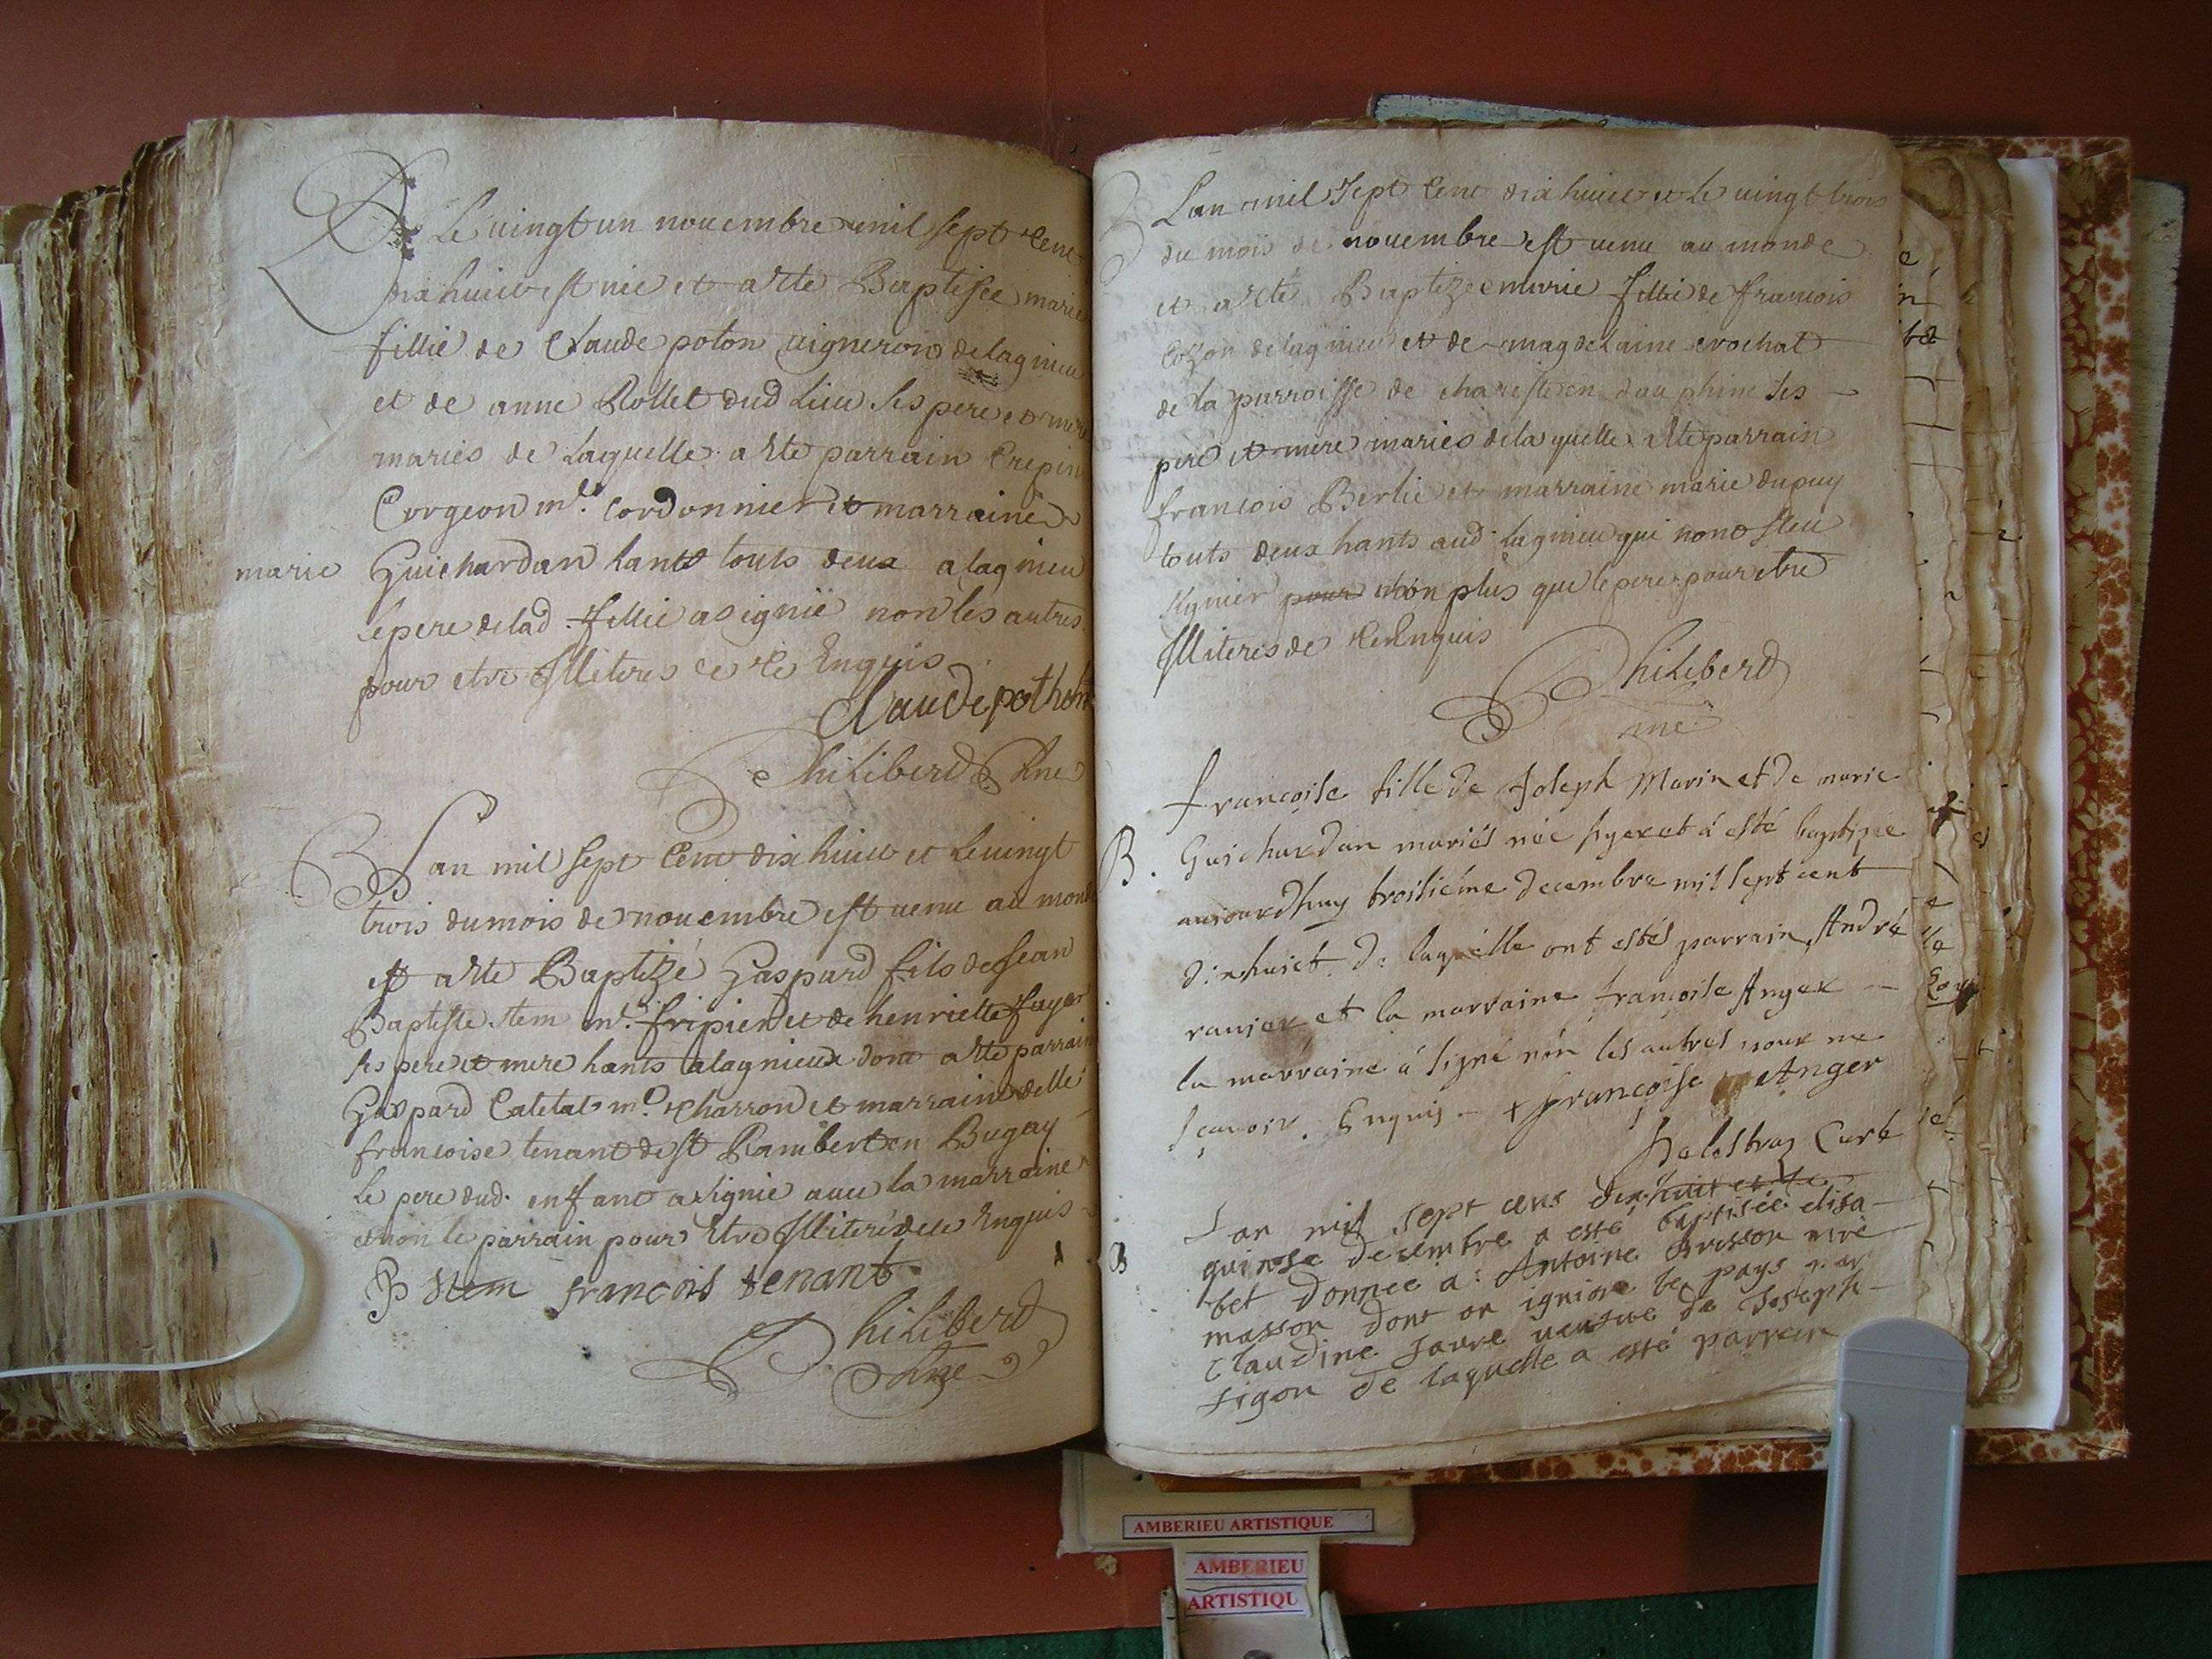 B Le vingt un novembre mil sept cent
dix huict est nee et a été Baptisée marie
fillie de Claude poton vigneron de lagnieu
et de anne Rollet dud Lieu ses pere et mere
mariés de Laquelle a été parrain Crepin
Corgeon mr. Cordonnier et marraine
marie Guichardan hants touts deux a lagnieu
le pere de lad. fillie a signié non les autres
pour etre Illiteres de ce Enquis
Claude pothon
Philiberd
B Lan mil sept Cent dix huict et le vingt
trois du mois de novembre est venu au monde
et a été Baptizé Gaspard fils de Jean
Baptiste stem mr. fripier et de henriette fayer
ses pere et mere hants a lagnieux dont a été parrain
Gaspard Catelat mr. Charron et marraine delle
francoise tenant de st Rambert en Bugay
le pere dud. enfant a signié avec la marraine
et non le parrain pour etre Illiteré de ce Enquis
B stem francois tenant
Philiberd
B Lan mil sept Cent dix huict et le vingt trois
du mois de novembre est venu au monde
et a été Baptizee marie fillie de francois
Cozon de lagnieu et de magdelaine crochat
de la parroisse de chareste en dauphine ses
pere et mere mariés de laquelle a été parrain
francois Berlie et marraine marie dupuy
touts deux hants aud. lagnieu qui nont sceu
signier pour non plus que le pere pour etre
Illiteres de ce Enquis
Philiberd
francoise fille de Joseph Marin et de marie
B. Guichardan mariés née hyer et á esté baptisée
aujourdhuy troisiéme decembre mil sept cent
dixhuict de laquelle ont estés parrain André
ravier et la marraine francoise Anger
la marraine á signé nón les autres pour ne
scavoir. Enquis + françoise Anger
Delestraz Curé
B Lan mil sept cens dix huit et le
quinse desembre a esté baptisée elisa-
bet donnee a: Antoine Brisson
masson dont on ignore le pays par
Claudine favre veufve de Joseph
figon de laquelle a esté parrein
AMBERIEU ARTISTIQUE
AMBERIEU
ARTISTIQU